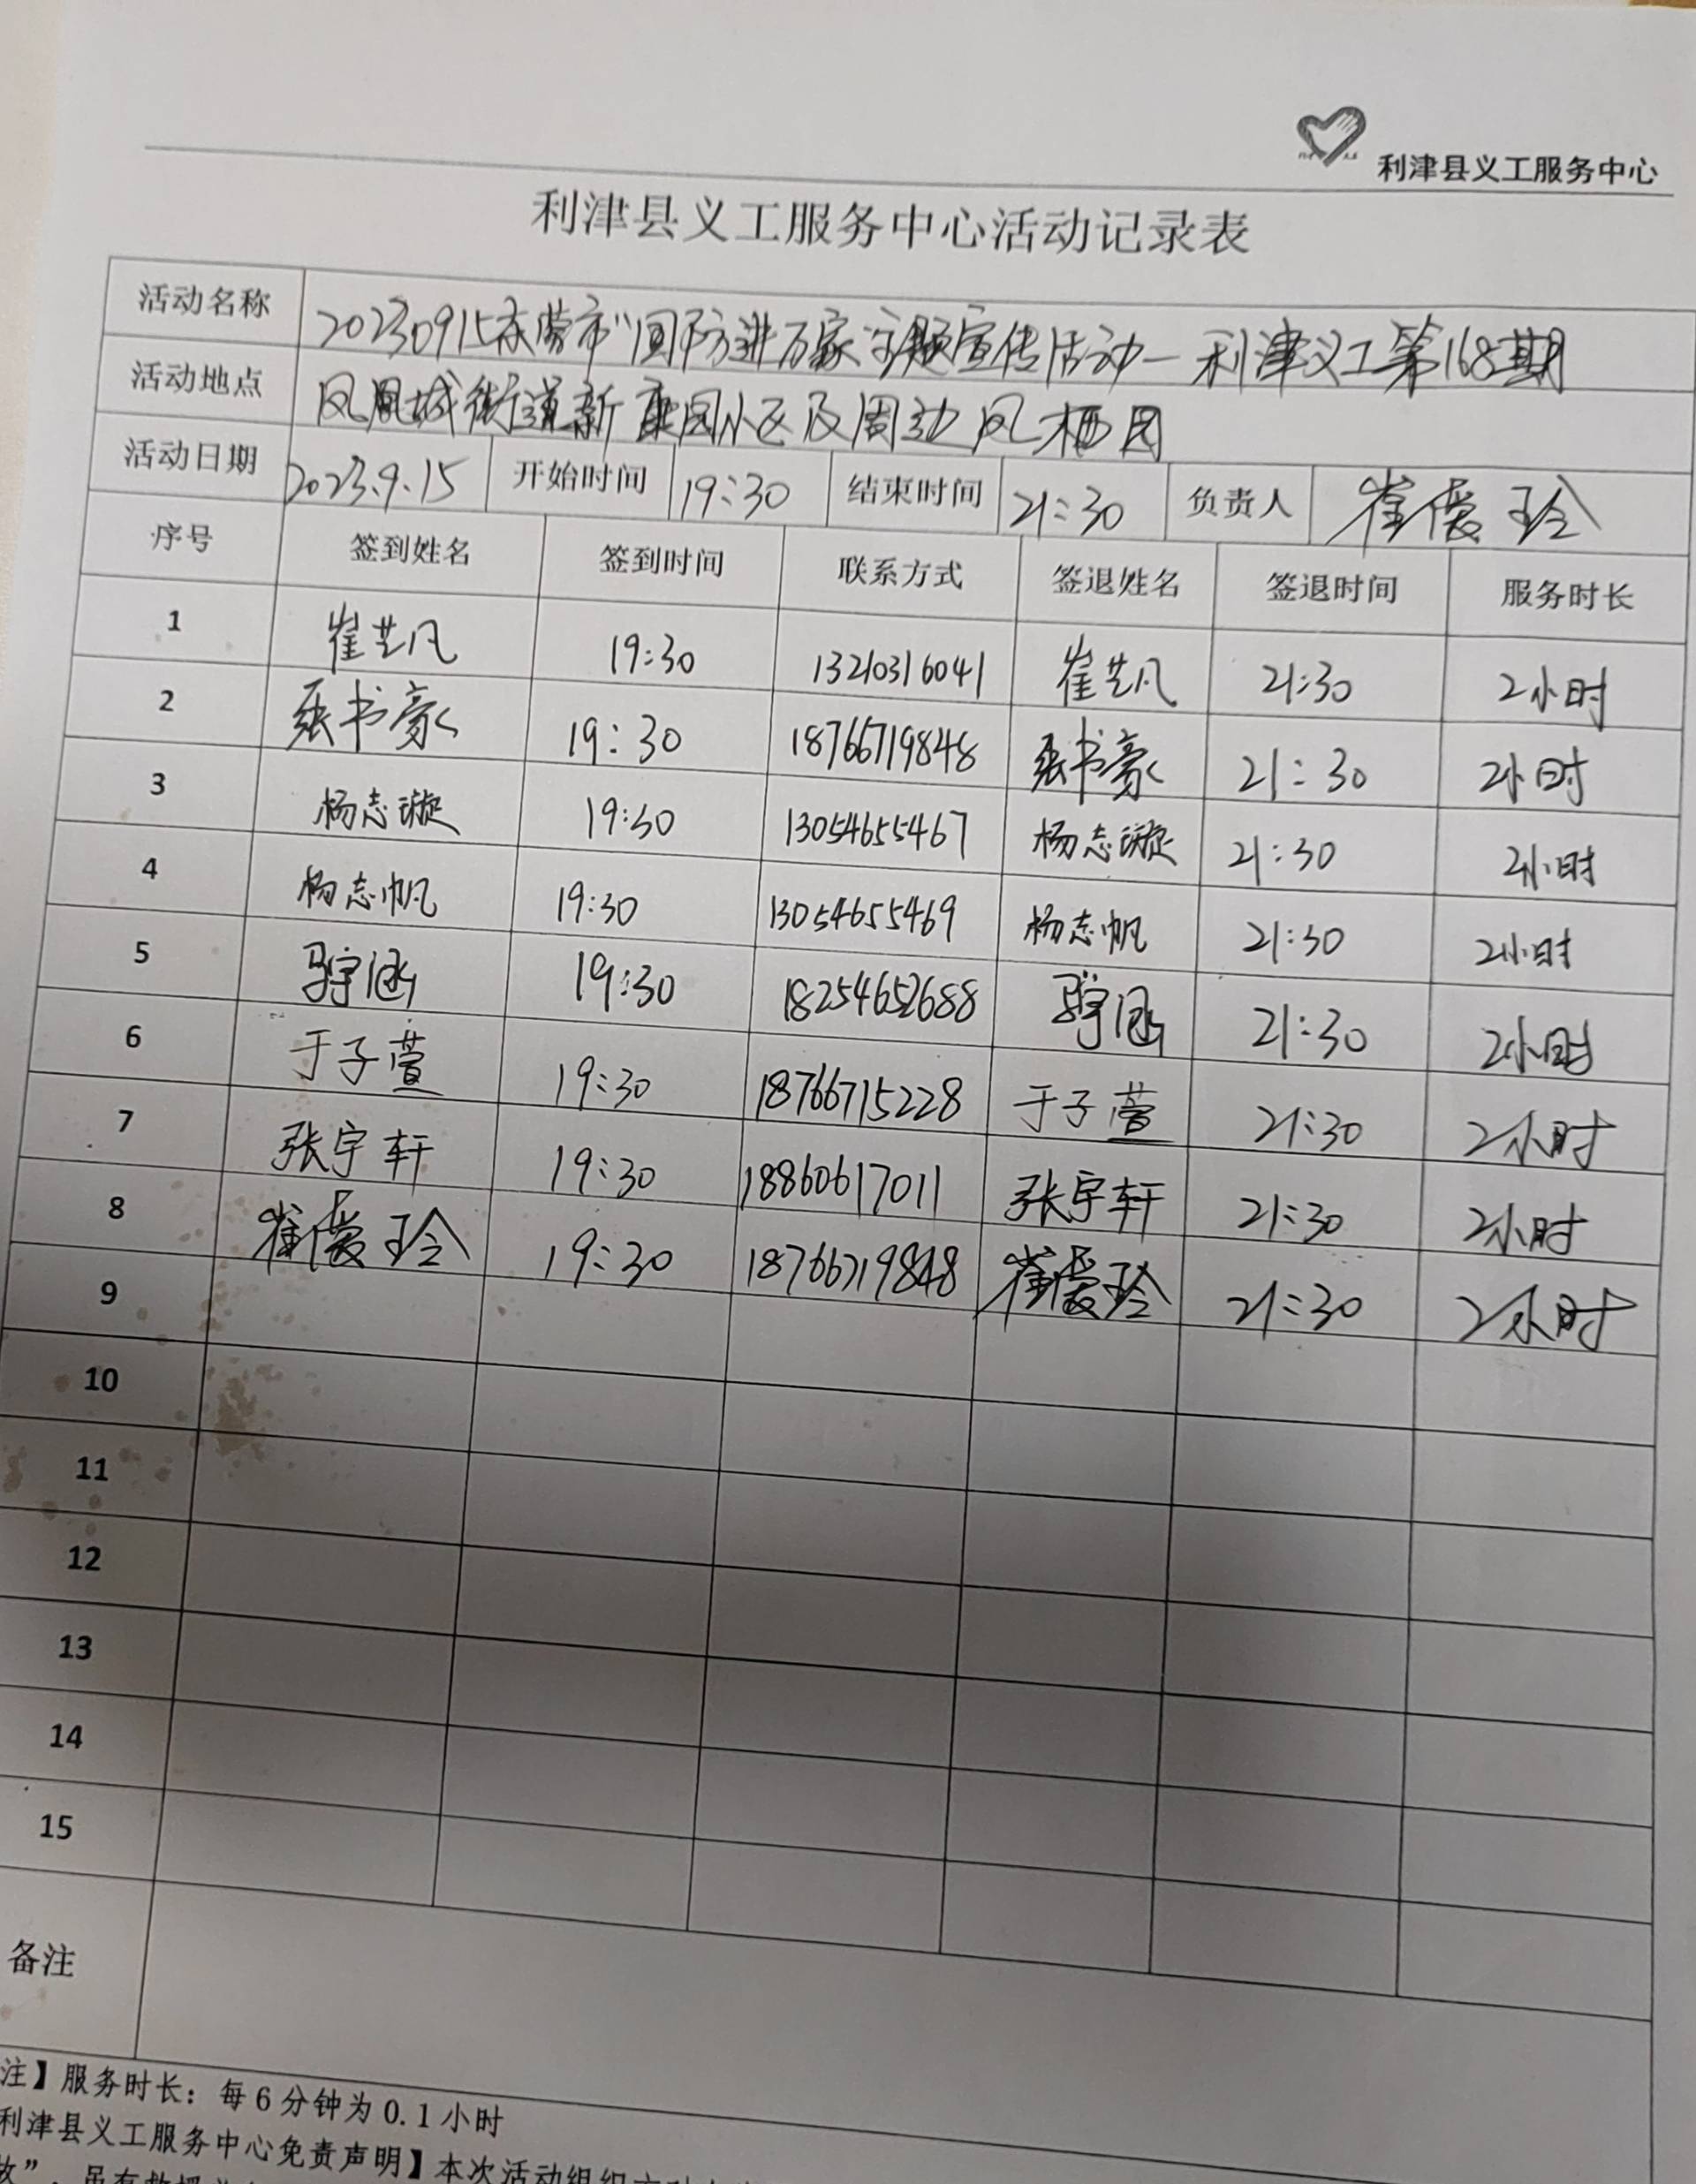 利津县义工服务中心
利津县义工服务中心活动记录表
活动名称 20230915东营市"国防进万家主题宣传活动—利津义工第168期
活动地点 凤凰城街道新康园小区及周边凤栖园
活动日期 2023.9.15 开始时间 19:30 结束时间 21:30 负责人 崔爱玲
序号 签到姓名 签到时间 联系方式 签退姓名 签退时间 服务时长
1 崔艺凡 19:30 13210316041 崔艺凡 21:30 2小时
2 张书豪 19:30 18766719848 张书豪 21:30 2小时
3 杨志璇 19:30 13054655467 杨志璇 21:30 2小时
4 杨志帆 19:30 13054655469 杨志帆 21:30 2小时
5 19:30 18254652688 21:30 2小时
6 于子萱 19:30 18766715228 于子萱 21:30 2小时
7 张宇轩 19:30 18860617011 张宇轩 21:30 2小时
8 崔爱玲 19:30 18766719848 崔爱玲 21:30 2小时
9
10
11
12
13
14
15
备注
注】服务时长：每6分钟为0.1小时
利津县义工服务中心免责声明】本次活动组织